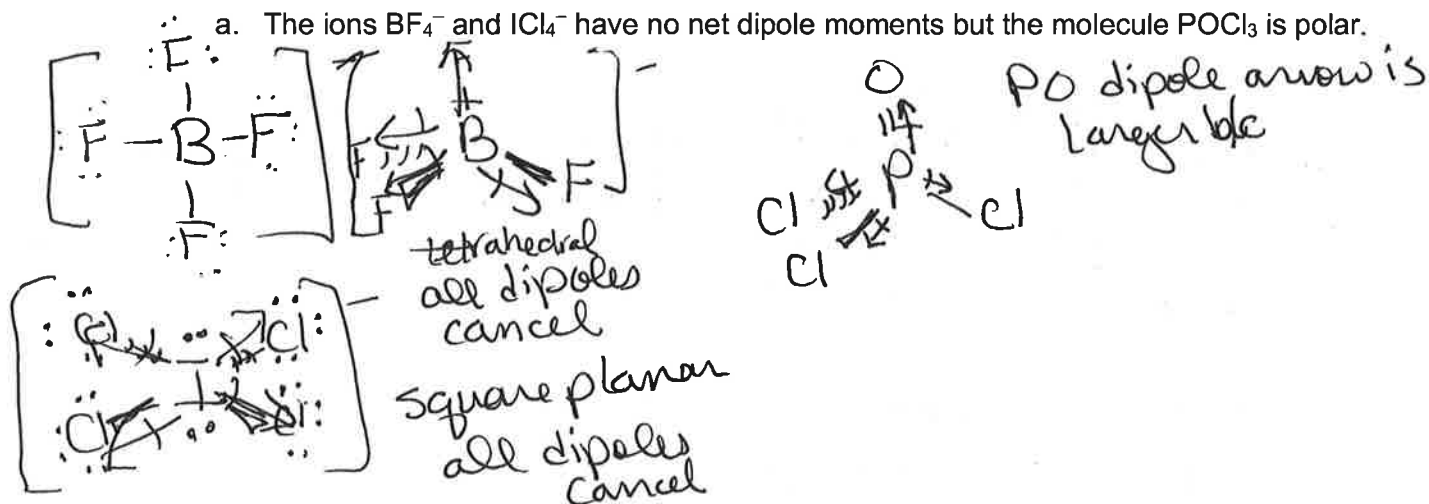 a. The ions BF₄⁻ and ICl₄⁻ have no net dipole moments but the molecule POCl₃ is polar.
F
F B F
F
F
F B F
F
tetrahedral
all dipoles
cancel
O
P
Cl Cl
Cl
PO dipole arrow is
larger b/c
Cl Cl
I
Cl Cl
square planar
all dipoles
cancel